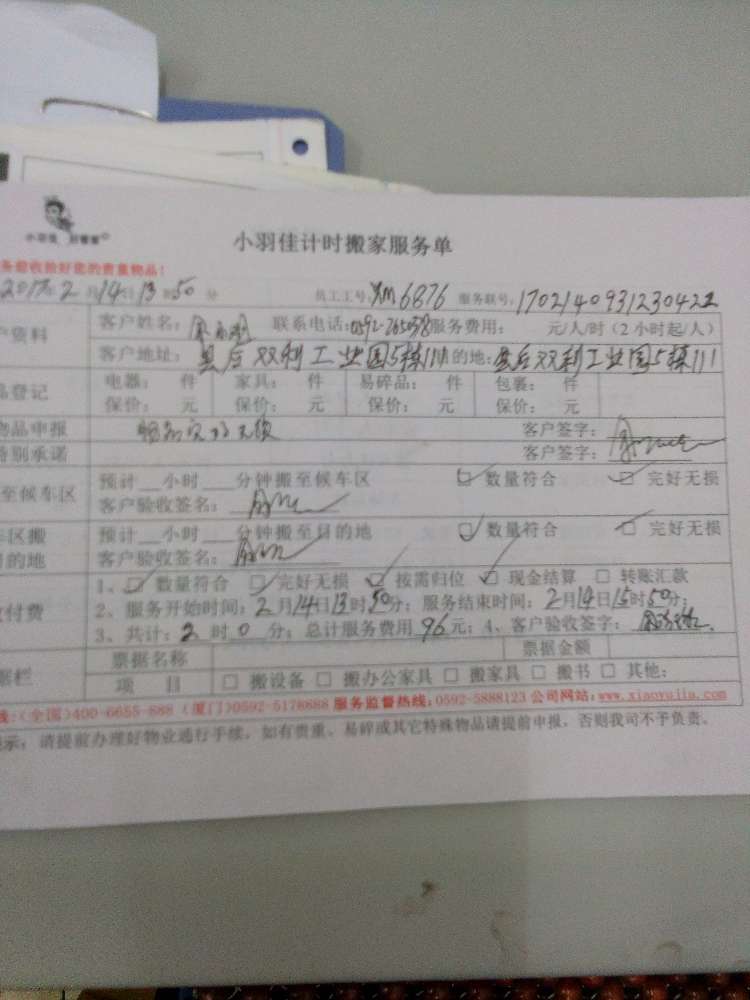 小羽佳计时搬家服务单
务必验收验好您的贵重物品!
2017年2月14日13时50分 员工工号:XM6876 服务联号:170214093123042
户资料 客户姓名: 联系电话:0592- 服务费用: 元/人/时(2小时起/人)
客户地址: 后双利工业园5栋111 目的地: 后双利工业园5栋111
品登记 电器: 件 家具: 件 易碎品: 件 包裹: 件
保价: 元 保价: 元 保价: 元 保价: 元
物品申报 客户签字:
特别承诺 客户签字:
至候车区 预计__小时___分钟搬至候车区 ☑ 数量符合 ☑ 完好无损
客户验收签名:
车区搬 预计__小时___分钟搬至目的地 ☑ 数量符合 ☑ 完好无损
目的地 客户验收签名:
收付费 1、☑ 数量符合 ☑ 完好无损 ☑ 按需归位 ☑ 现金结算 □ 转账汇款
2、服务开始时间:2月14日13时50分;服务结束时间:2月14日15时50分;
3、共计:2时0分;总计服务费用96元;4、客户验收签字:
据栏 票据名称 票据金额
项 目 □ 搬设备 □ 搬办公家具 □ 搬家具 □ 搬书 □ 其他:
线:(全国)400-6655-888 (厦门)0592-5178688 服务监督热线:0592-5888123 公司网站:www.xiaoyujia.com
提示:请提前办理好物业通行手续,如有贵重、易碎或其它特殊物品请提前申报,否则我司不予负责。